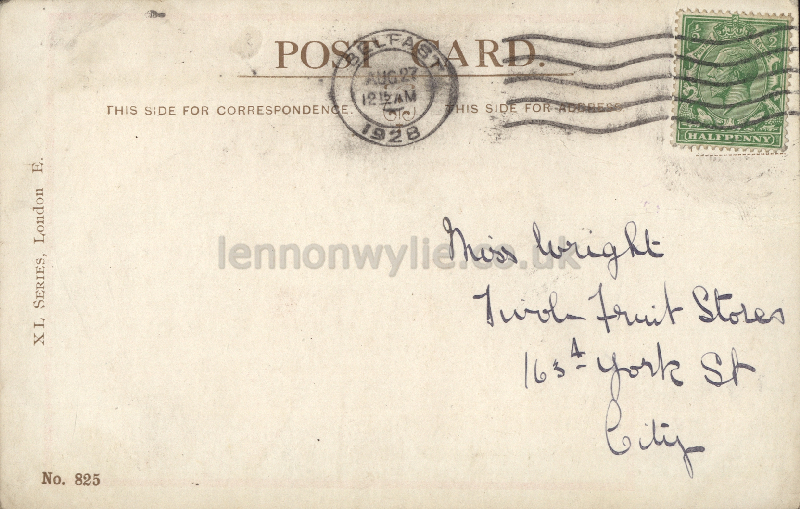 POST CARD.
BELFAST
AUG 27
12 15 AM
1928
HALFPENNY
THIS SIDE FOR CORRESPONDENCE.
THIS SIDE FOR ADDRESS
XL SERIES, London E.
lennonwylie.co.uk
Miss Wright
Fruit Stores
York St
City
No. 825